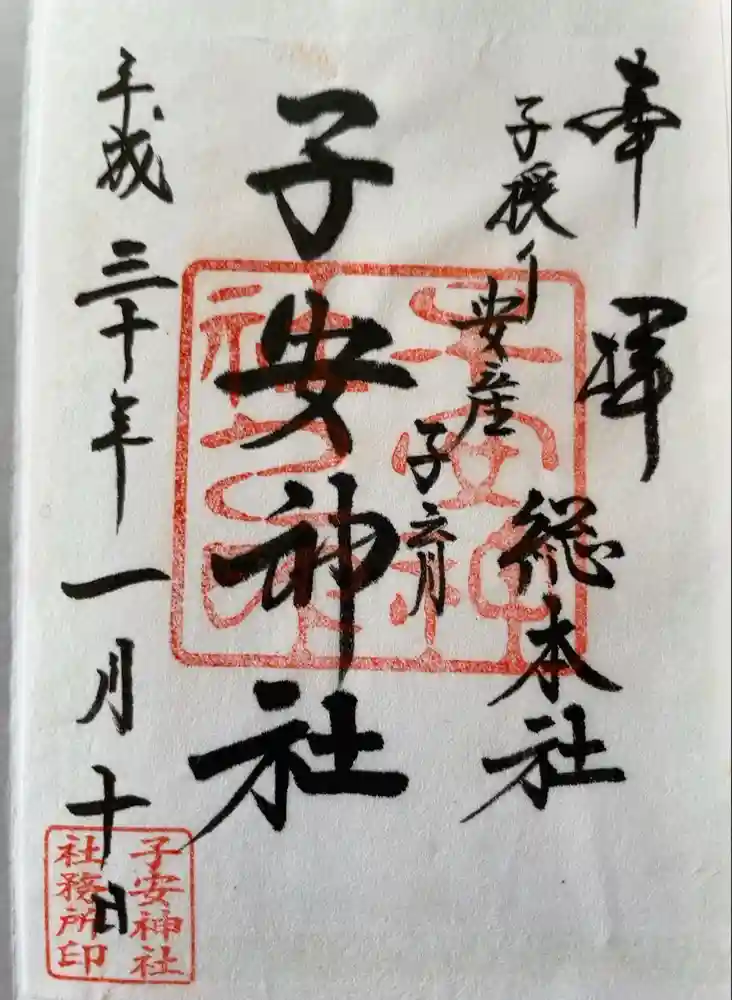 奉拝
子授り
安産
子育
総本社
子安神社
平成三十年一月十日
子安神社之印
子安神社
社務所印